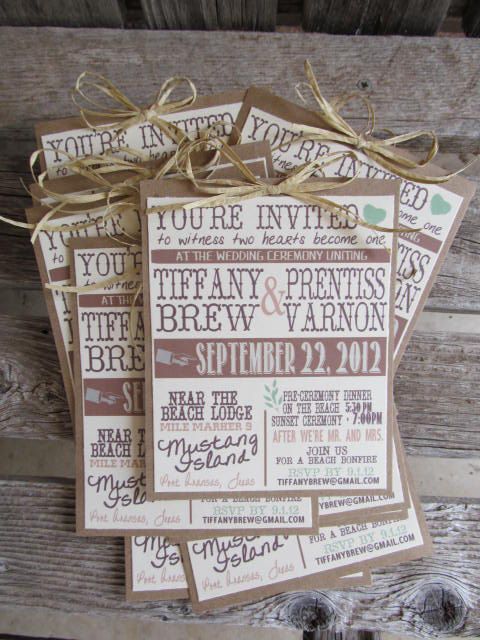 YOU'RE INVITED
to witness two hearts become one
AT THE WEDDING CEREMONY UNITING
TIFFANY BREW & PRENTISS VARNON
SEPTEMBER 22, 2012
NEAR THE
BEACH LODGE
MILE MARKER 9
Mustang
Island
Port Aransas, Texas
PRE-CEREMONY DINNER
ON THE BEACH 5:30 PM
SUNSET CEREMONY · 7:00PM
AFTER WE'RE MR. AND MRS.
JOIN US
FOR A BEACH BONFIRE
RSVP BY 9.1.12
TIFFANYBREW@GMAIL.COM
YOU'RE INVITED
to witness two hearts
YOU'RE INVITED
to witness two hearts become one
YOU'RE
AT THE
TIFFANY
BREW
NEAR THE
BEACH LODGE
MILE MARKER
Mustang
Island
Port Aransas, Texas
FOR A BEACH BONFIRE
RSVP BY 9.1.12
TIFFANYBREW@GMAIL.COM
Mustang
Island
Port Aransas, Texas
FOR A BEACH BONFIRE
RSVP BY 9.1.12
TIFFANYBREW@GMAIL.COM